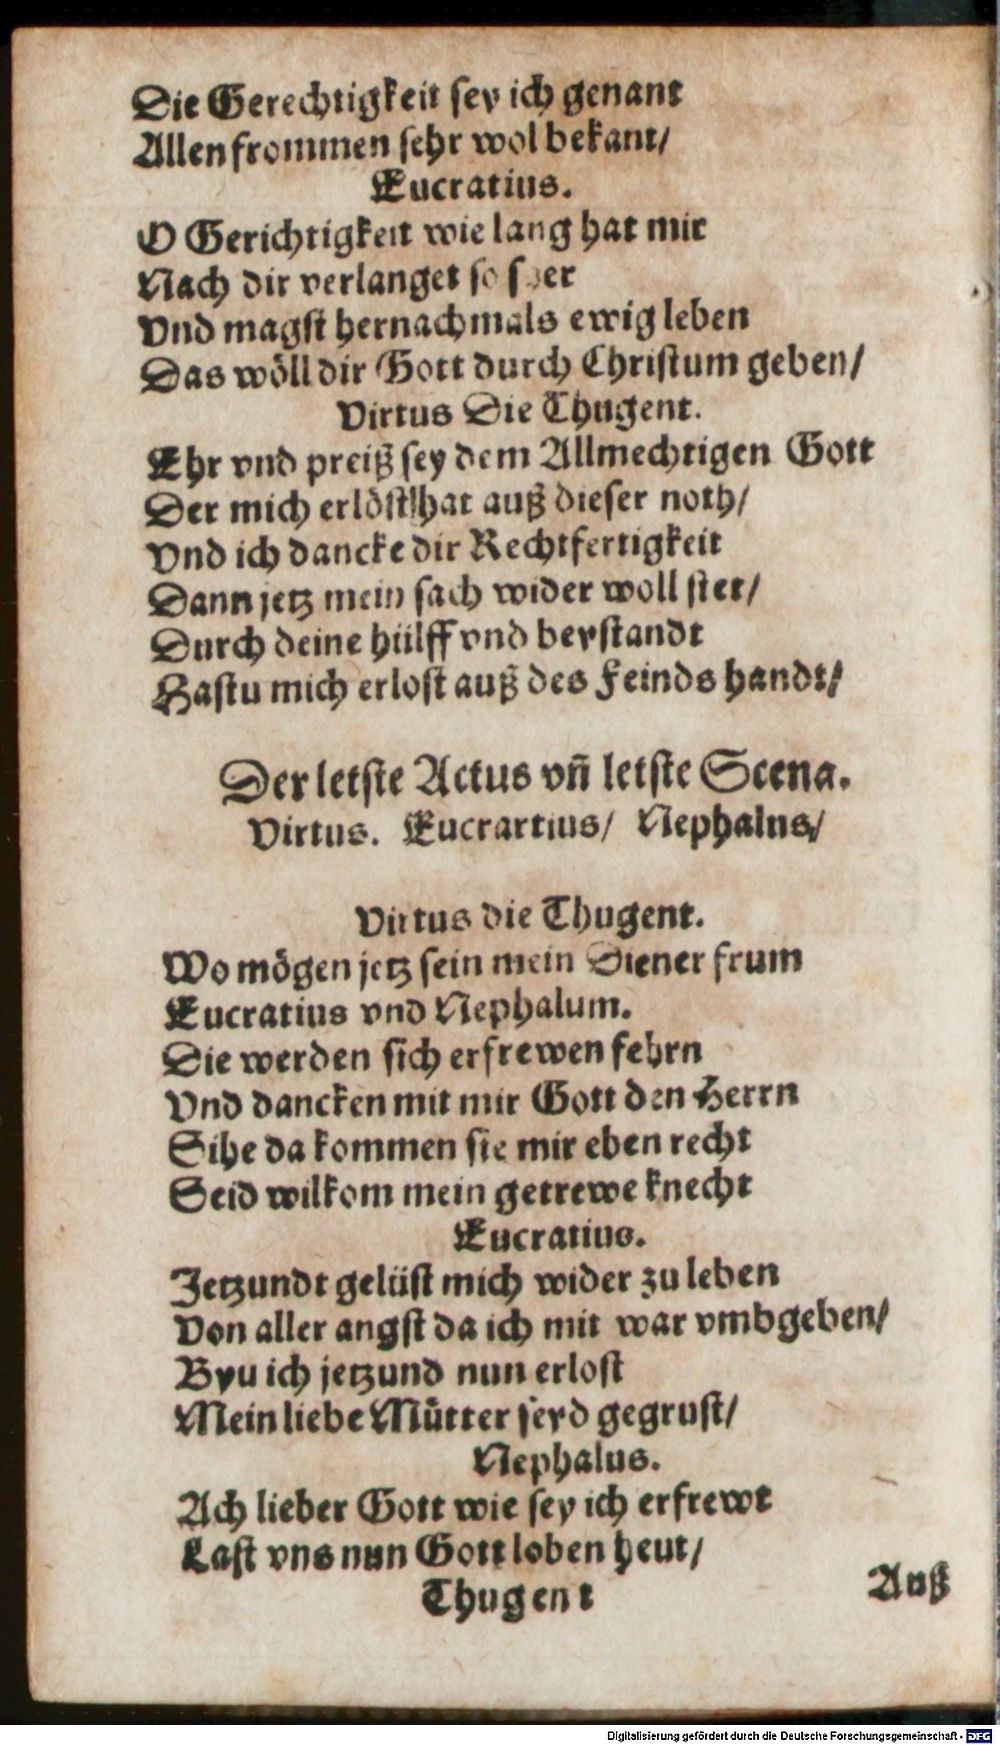 Die Gerechtigkeit sey ich genant
Allen frommen sehr wol bekant/
Eucratius.
O Gerichtigkeit wie lang hat mir
Nach dir verlanget so
Vnd magst hernachmals ewig leben
Das wöll dir Gott durch Christum geben/
Virtus Die Thugent.
Ehr vnd preiß sey dem Allmechtigen Gott
Der mich erlöst hat auß dieser noth/
Vnd ich dancke dir Rechtfertigkeit
Dann jetz mein sach wider woll stet/
Durch deine hülff vnd beystandt
Hastu mich erlost auß des Feinds handt/
Der letste Actus vñ letste Scena.
Virtus. Eucrartius/ Nephalus/
Virtus die Thugent.
Wo mögen jetz sein mein Diener frum
Eucratius vnd Nephalum.
Die werden sich erfrewen fehrn
Vnd dancken mit mir Gott den Herrn
Sihe da kommen sie mir eben recht
Seid wilkom mein getrewe knecht
Eucratius.
Jetzundt gelüst mich wider zu leben
Von aller angst da ich mit war vmbgeben/
Byu ich jetzund nun erlost
Mein liebe Můtter seyd gegrust/
Nephalus.
Ach lieber Gott wie sey ich erfrewt
Last vns nun Gott loben heut/
Thugent
Auß
Digitalisierung gefördert durch die Deutsche Forschungsgemeinschaft - DFG